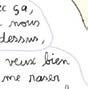 ça,
nous
dessus,
veux bien
me raser